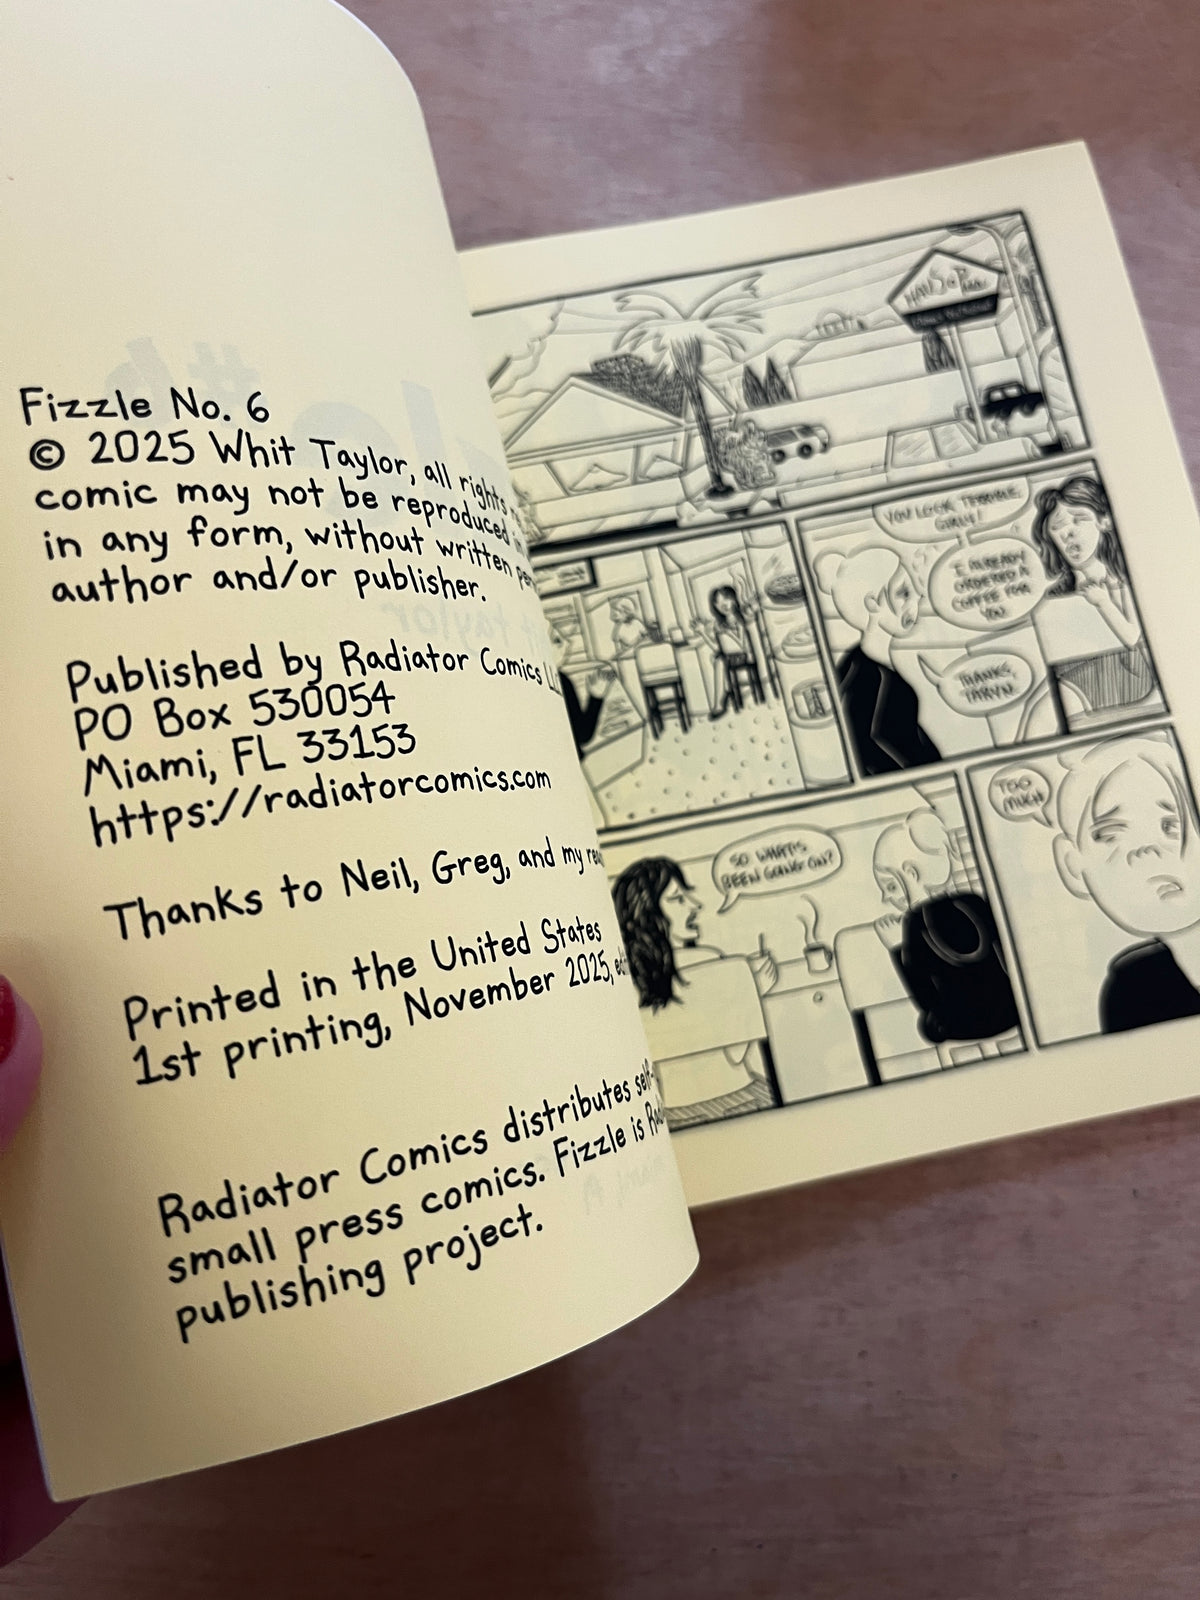 Fizzle No. 6
© 2025 Whit Taylor, all rights
comic may not be reproduced
in any form, without written
author and/or publisher.
Published by Radiator Comics
PO Box 530054
Miami, FL 33153
https://radiatorcomics.com
Thanks to Neil, Greg, and my
Printed in the United States
1st printing, November 2025,
Radiator Comics distributes
small press comics. Fizzle is
publishing project.
YOU LOOK TERRIBLE,
GIRLY!
I ALREADY
ORDERED A
COFFEE FOR
YOU.
THANKS,
TARYN.
SO WHAT'S
BEEN GOING ON?
TOO
MUCH